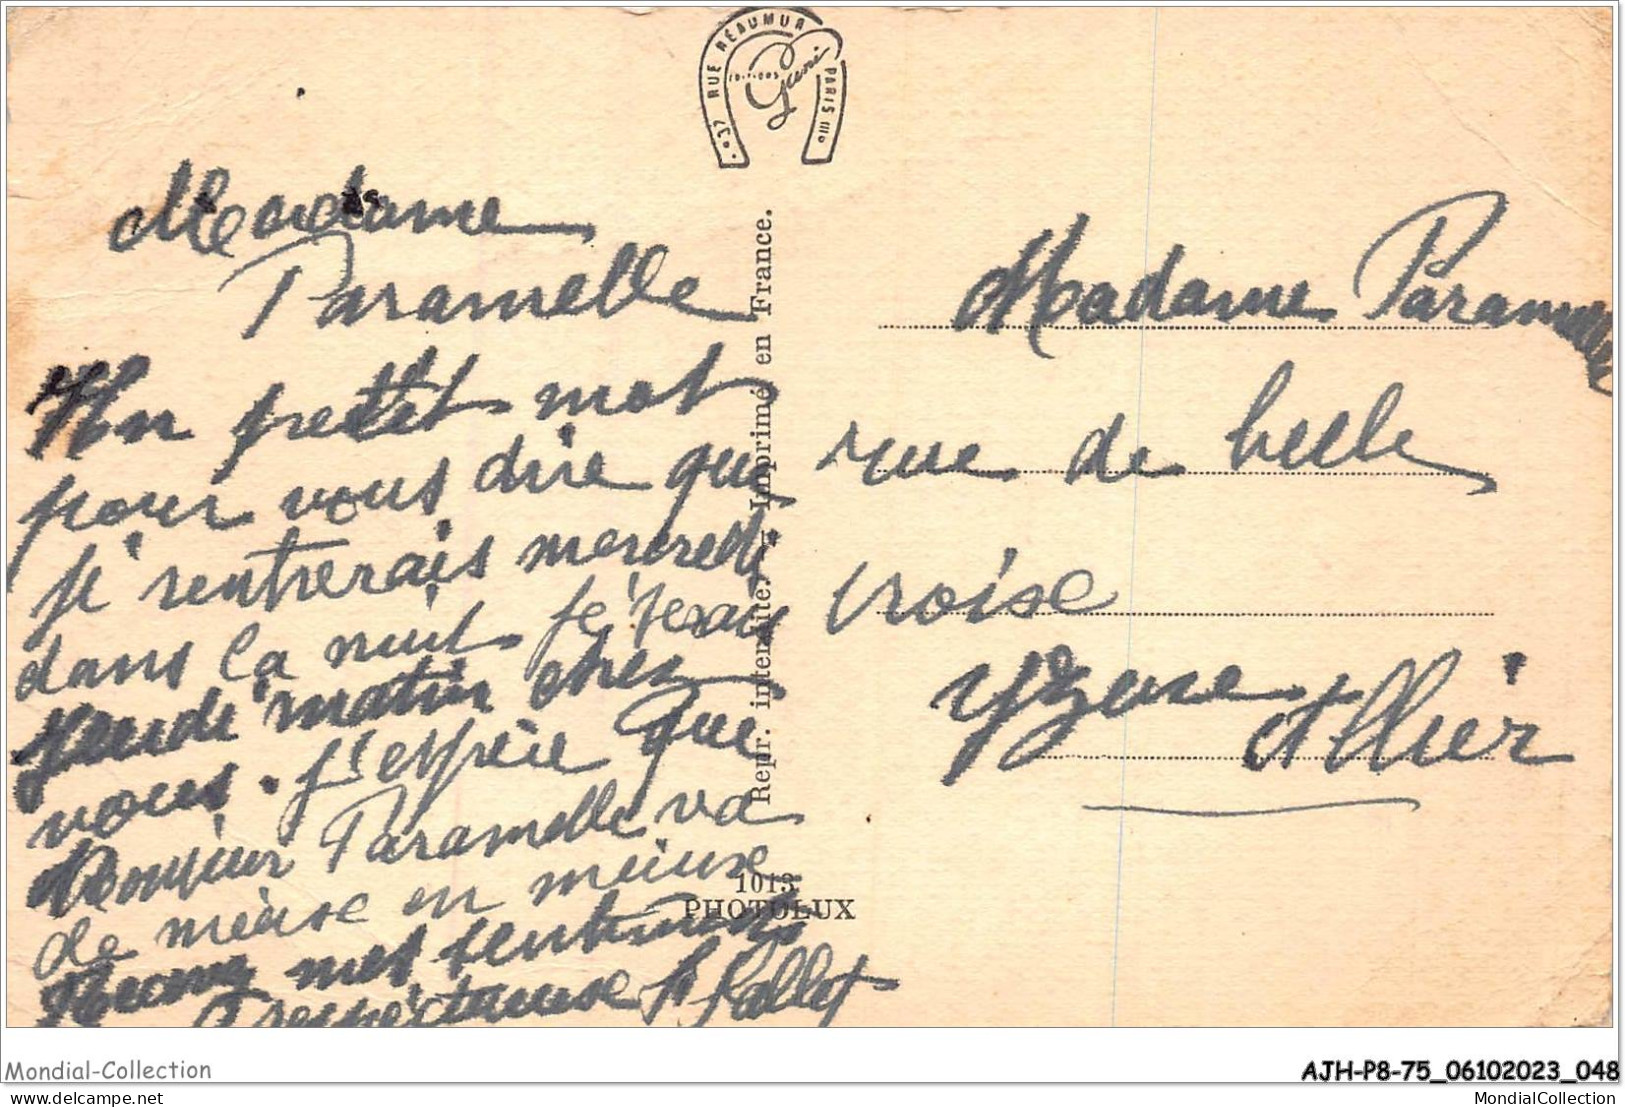 37 RUE RÉAUMUR PARIS IIIe
EDITIONS
Guni
Madame
Paramelle
Un petit mot
pour vous dire que
je rentrerais mercredi
dans la nuit je serais
jeudi matin chez
vous. j'espère que
Monsieur Paramelle va
de mieuse en mieuse
mes sentiments
respectueuse
Repr. interdite. - Imprimé en France.
1013
PHOTOLUX
Madame Paramelle
rue de belle
croise
Yzeure
Allier
Mondial-Collection
AJH-P8-75_06102023_048
www.delcampe.net
MondialCollection